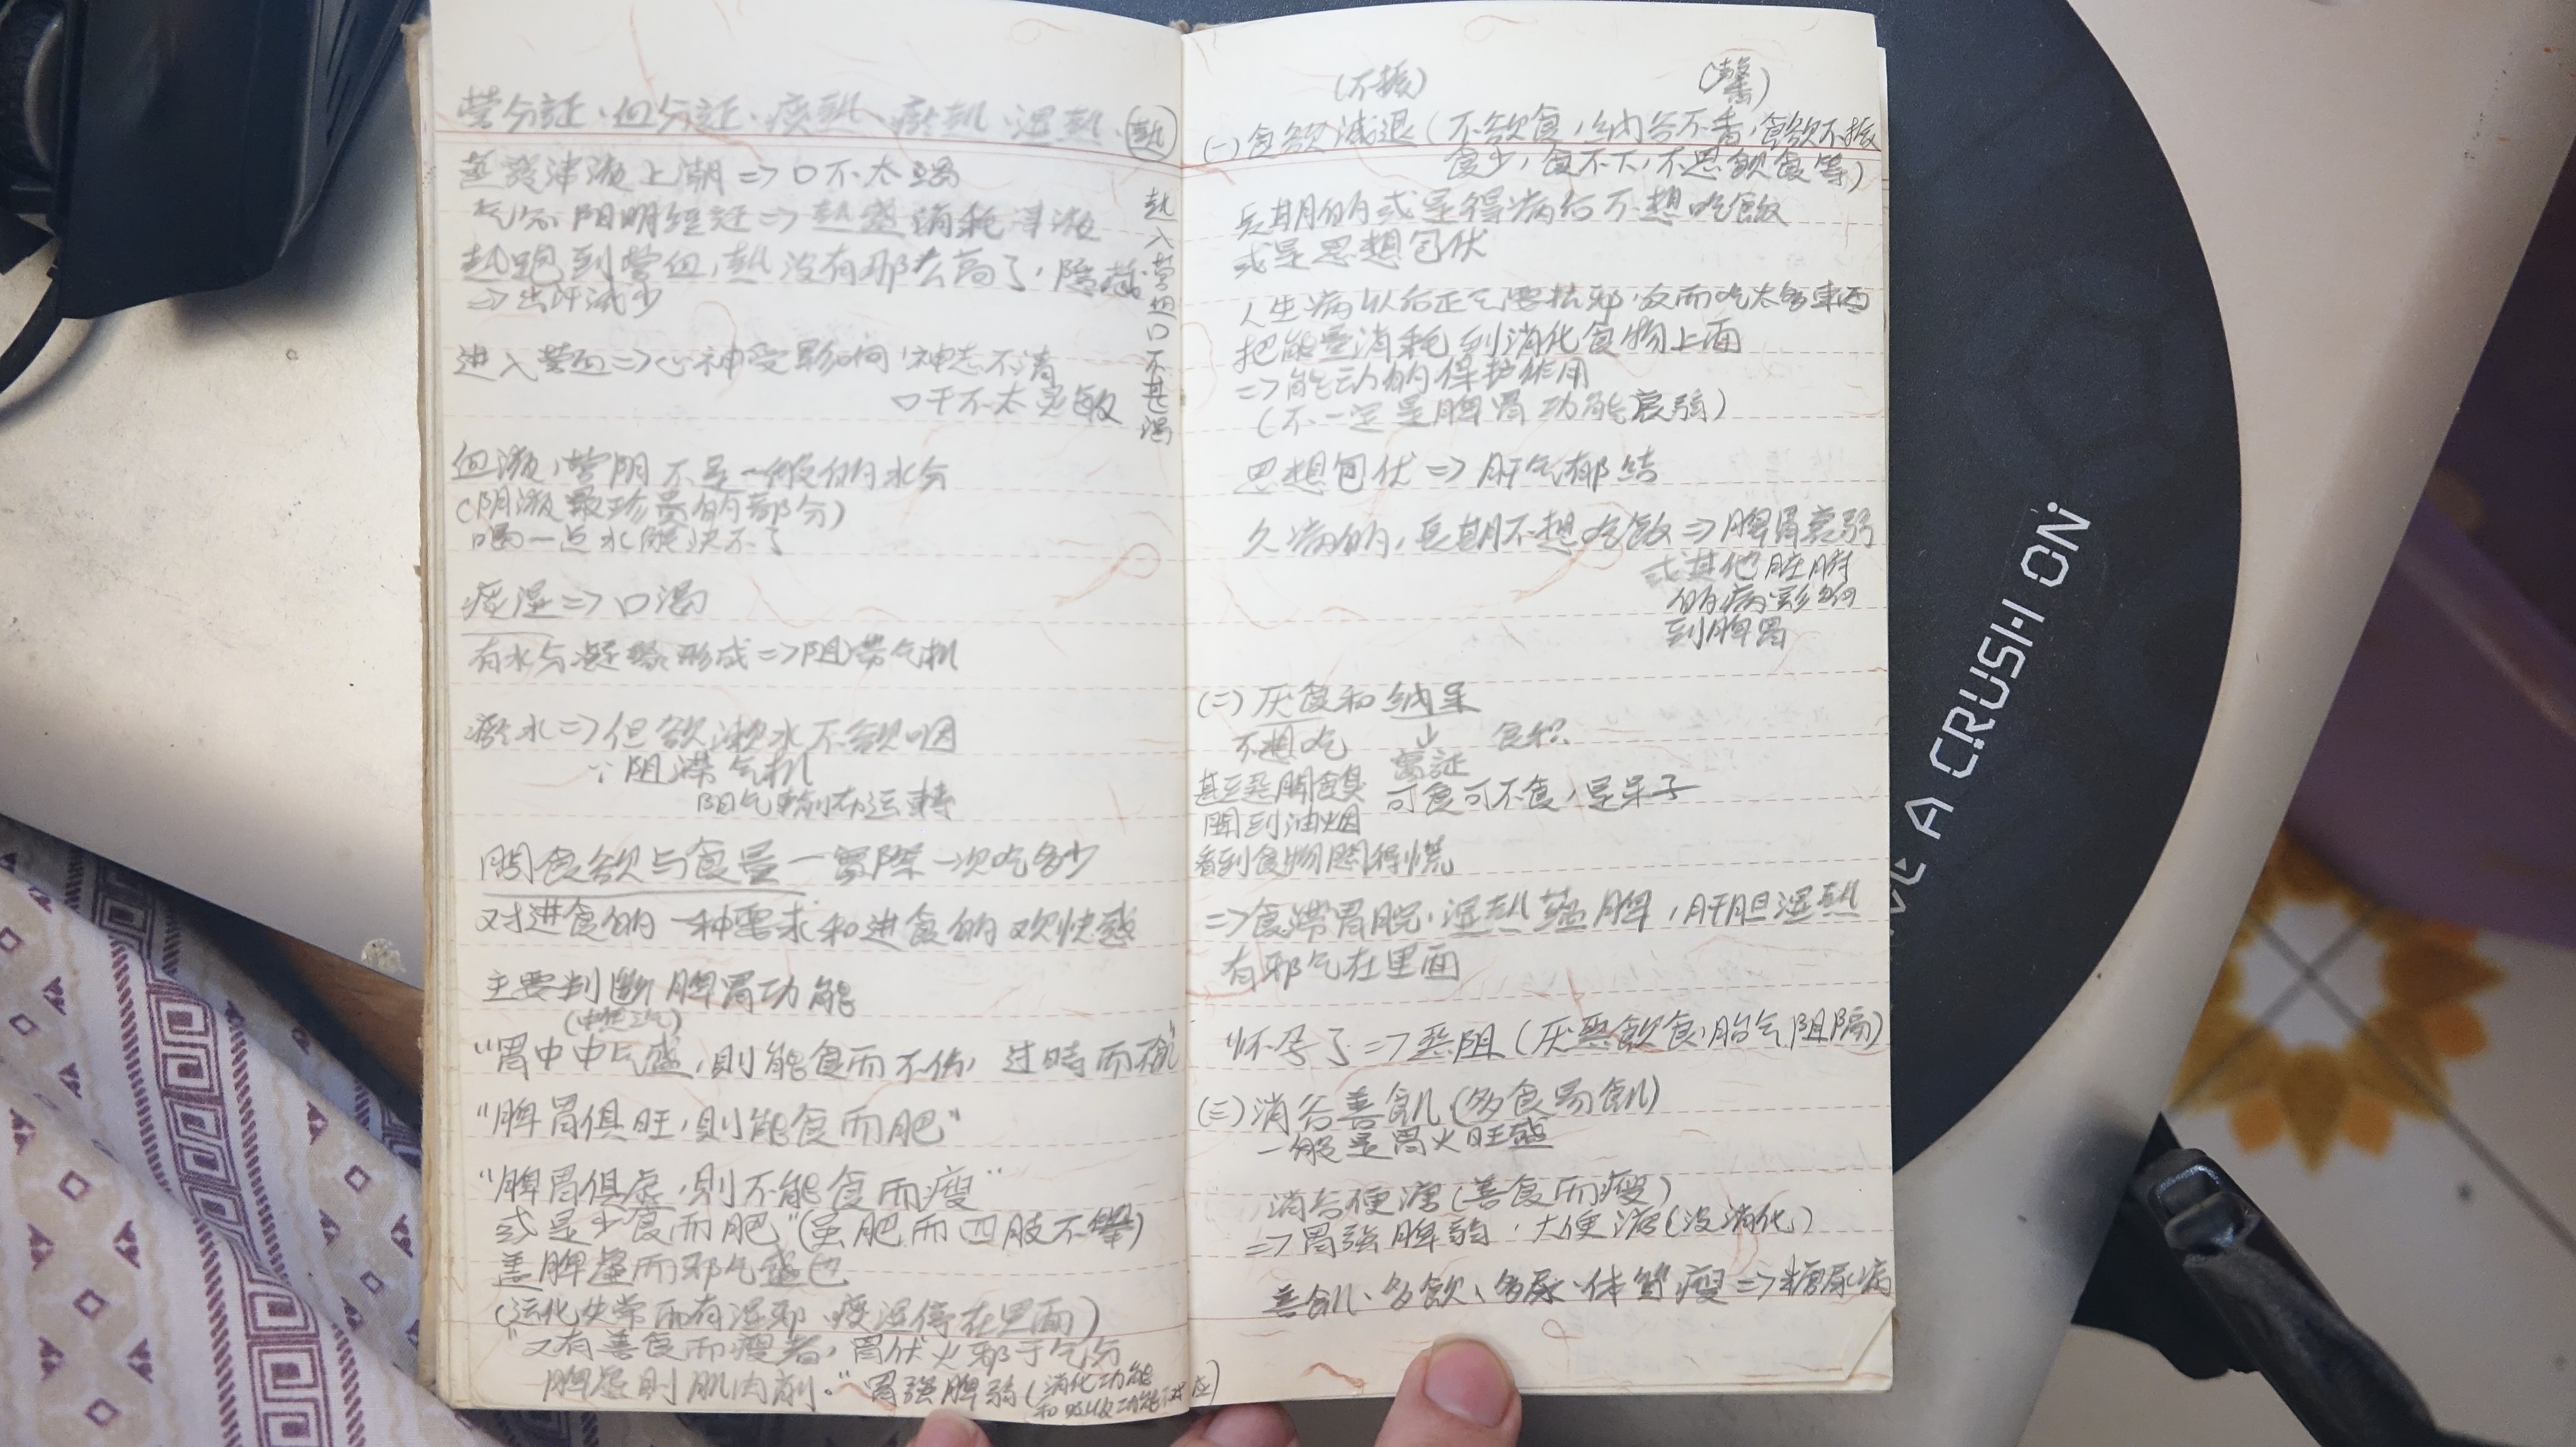 营分証、血分証、痰熱、瘀熱、湿熱、(熱)
蒸發津液上潮⇒口不太渴
气分、阳明经証⇒熱盛消耗津液
熱跑到营血,熱没有那么高了,隐藏
⇒出汗減少
熱入营血口不甚渴
进入营血⇒心神受影响,神志不清
口干不太灵敏
血液,营阴不是一般的水分
(阴液最珍贵的部分)
喝一点水解决不了
痰湿⇒口渴
有水与凝聚形成⇒阻滞气机
瘀水⇒但欲漱水不欲咽
∵阻滞气机
阳气輸布运転
問食欲与食量一實際一次吃多少
对进食的一种需求和进食的欢快感
主要判断脾胃功能
"胃中中气盛,則能食而不伤,过時而不飢"
"脾胃俱旺,則能食而肥"
"脾胃俱虚,則不能食而瘦"
或是少食而肥"(虽肥而四肢不舉)
盖脾虚而邪气盛也
(运化失常而有湿邪、痰湿停在里面)
"又有善食而瘦者,胃伏火邪于气分
脾虚則肌肉削。"胃強脾弱(消化功能
和吸收功能不对应)
(不振)
(馨)
(一)食欲減退(不欲食,纳谷不香,食欲不振
食少,食不下,不思飲食等)
長期的或是得病后不想吃飯
或是思想包伏
人生病以后正气要抗邪,反而吃太多東西
把能量消耗到消化食物上面
⇒能动的保护作用
(不一定是脾胃功能衰弱)
思想包伏⇒肝气郁结
久病的,長期不想吃飯⇒脾胃衰弱
或其他脏腑
的病影响
到脾胃
(二)厌食和纳呆
不想吃
食积
甚至恶聞食臭
可食可不食,是呆子
聞到油烟
看到食物悶得慌
⇒食滞胃脘,湿熱蕴脾,肝胆湿熱
有邪气在里面
怀孕了⇒恶阻(厌恶飲食,胎气阻隔)
(三)消谷善飢(多食易飢)
一般是胃火旺盛
消谷便溏(善食而瘦)
⇒胃強脾弱,大便溏(没消化)
善飢、多飲、多尿、体質瘦⇒糖尿病
A CRUSH ON